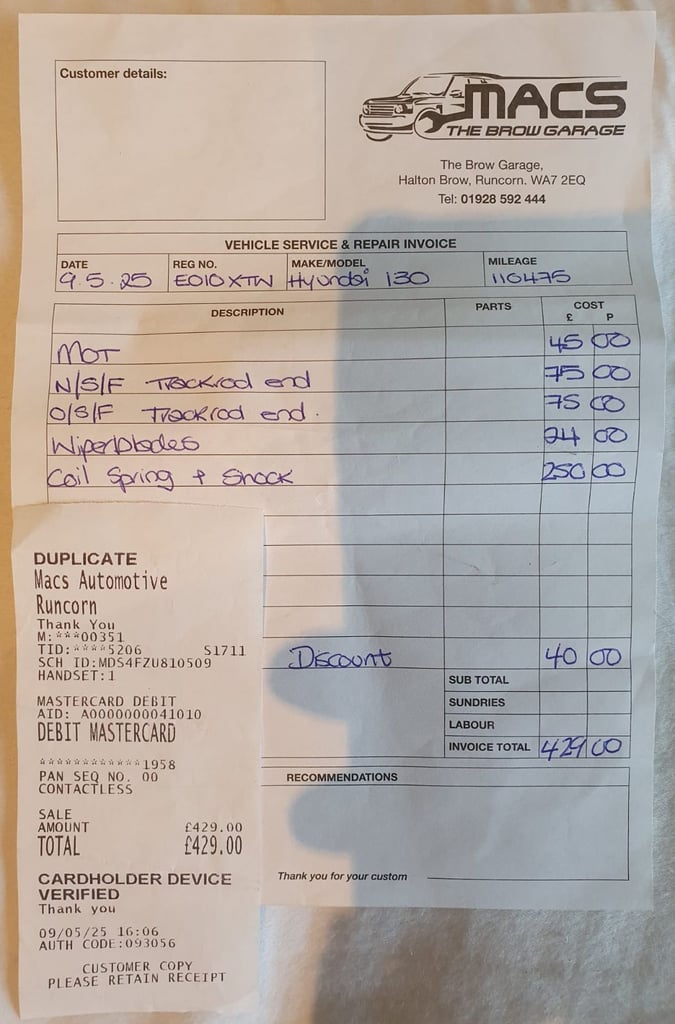 Customer details:
MACS
THE BROW GARAGE
The Brow Garage,
Halton Brow, Runcorn. WA7 2EQ
Tel: 01928 592 444
VEHICLE SERVICE & REPAIR INVOICE
DATE REG NO. MAKE/MODEL MILEAGE
9.5.25 EO10XTW Hyundai i30 110475
DESCRIPTION PARTS COST
£ P
MOT 45 00
N/S/F Trackrod end 75 00
O/S/F Trackrod end. 75 00
Wiperblades 24 00
Coil Spring + Shock 250 00
Discount 40 00
SUB TOTAL
SUNDRIES
LABOUR
INVOICE TOTAL 429 00
RECOMMENDATIONS
Thank you for your custom
DUPLICATE
Macs Automotive
Runcorn
Thank You
M:***00351
TID:****5206 S1711
SCH ID:MDS4FZU810509
HANDSET:1
MASTERCARD DEBIT
AID: A0000000041010
DEBIT MASTERCARD
************1958
PAN SEQ NO. 00
CONTACTLESS
SALE
AMOUNT £429.00
TOTAL £429.00
CARDHOLDER DEVICE
VERIFIED
Thank you
09/05/25 16:06
AUTH CODE:093056
CUSTOMER COPY
PLEASE RETAIN RECEIPT